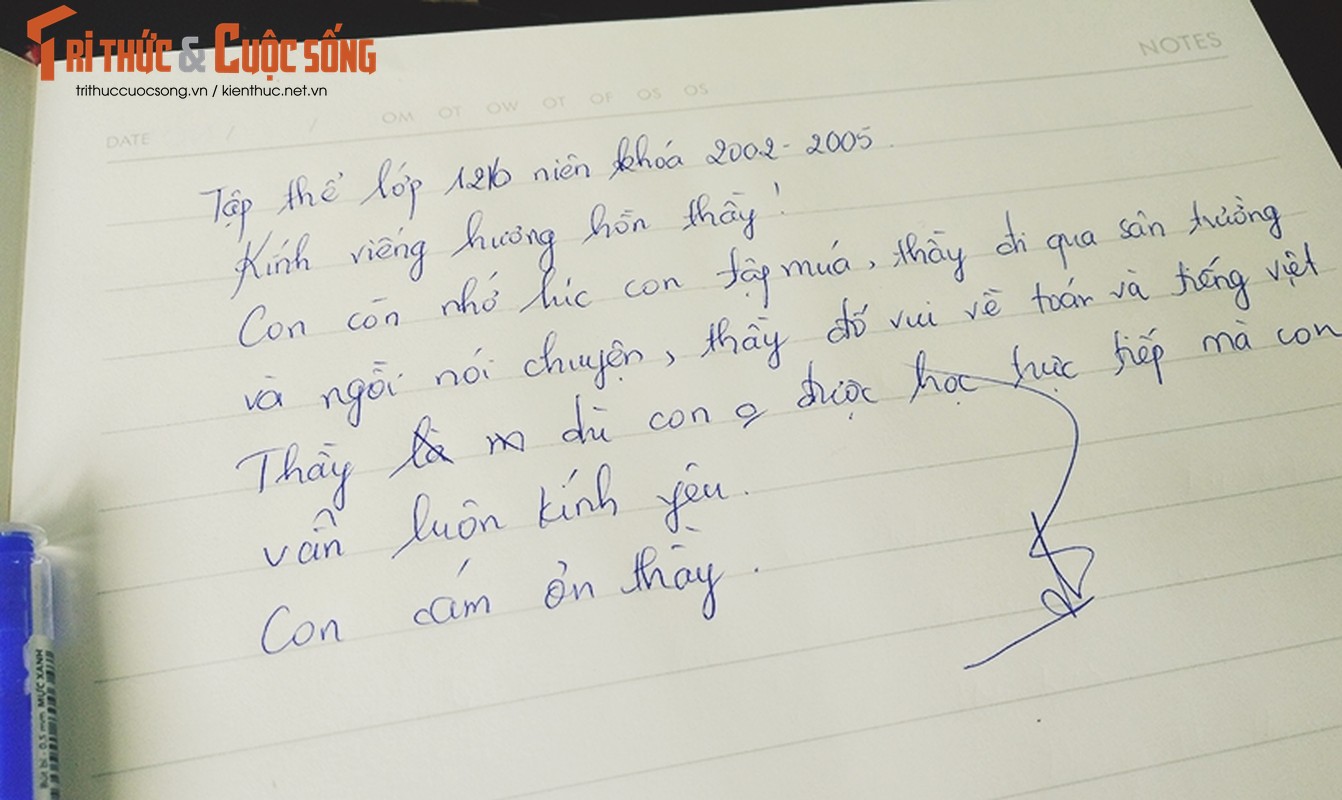 TRI THỨC & CUỘC SỐNG
trithuccuocsong.vn / kienthuc.net.vn
NOTES
DATE / / OM OT OW OT OF OS OS
Tập thể lớp 12 niên khóa 2002-2005.
Kính viếng hương hồn thầy!
Con còn nhớ lúc con tập múa, thầy đi qua sân trường
và ngồi nói chuyện, thầy đố vui về toán và tiếng việt
Thầy là m dù con được học trực tiếp mà con
vẫn luôn kính yêu.
Con cám ơn thầy.
Bút bi - 0.5 mm MỰC XANH